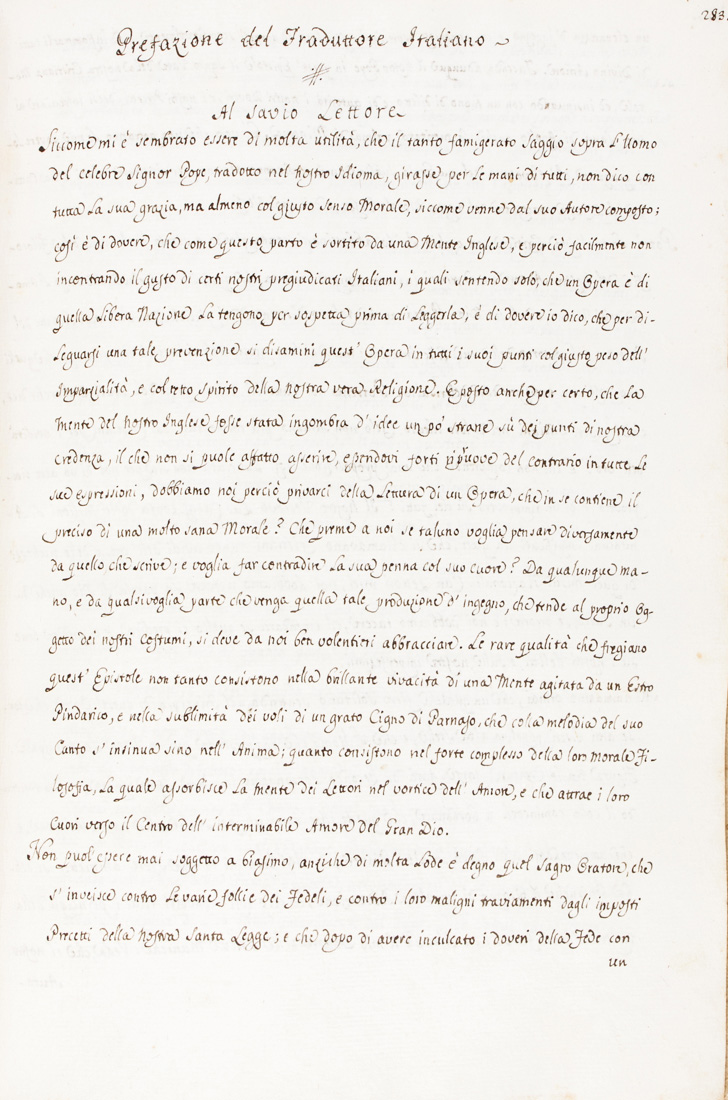 283.
Prefazione del Traduttore Italiano
Al savio Lettore
Siccome mi è sembrato essere di molta utilità, che il tanto famigerato saggio sopra L'Uomo
del celebre Signor Pope, tradotto nel nostro Idioma, girasse per le mani di tutti, non dico con
tutta La sua grazia, ma almeno col giusto senso Morale, siccome venne dal suo Autore composto;
così è di dovere, che come questo parto è sortito da una Mente Inglese, e perciò facilmente non
incontrando il gusto di certi nostri pregiudicati Italiani, i quali sentendo solo, che un Opera è di
quella Libera Nazione La tengono per sospetta prima di Leggerla, è di dovere io dico, che per di-
Leguarsi una tale prevenzione si disamini quest' Opera in tutti i suoi punti col giusto peso dell'
Imparzialità, e col retto spirito della nostra vera Religione. E posto anche per certo, che La
Mente del nostro Inglese fosse stata ingombra d' idee un po' strane sù dei punti di nostra
credenza, il che non si puole affatto asserire, essendovi forti pruove del contrario in tutte Le
sue espressioni, dobbiamo noi perciò privarci della Lettura di un Opera, che in se contiene il
preciso di una molto sana Morale? Che preme a noi se taluno voglia pensare diversamente
da quello che scrive; e voglia far contradire La sua penna col suo cuore? Da qualunque ma-
no, e da qualsivoglia parte che venga quella tale produzione d' ingegno, che tende al proprio Og-
getto dei nostri Costumi, si deve da noi ben volentieri abbracciare. Le rare qualità che fregiano
quest' Epistole non tanto consistono nella brillante vivacità di una Mente agitata da un Estro
Pindarico, e nella sublimità dei voli di un grato Cigno di Parnaso, che co la melodia del suo
Canto s' insinua sino nell' Anima; quanto consistono nel forte complesso della loro Morale Fi-
losofia, La quale assorbisce La mente dei Lettori nel vortice dell' Amore, e che attrae i loro
Cuori verso il Centro dell' interminabile Amore del Gran Dio.
Non puol' essere mai soggetto a biasimo, anziche di molta Lode è degno quel sagro Oratore, che
s' inveisce contro Le varie follie dei Fedeli, e contro i loro maligni traviamenti dagli imposti
Precetti della nostra Santa Legge; e che dopo di avere inculcato i doveri della Fede con
un